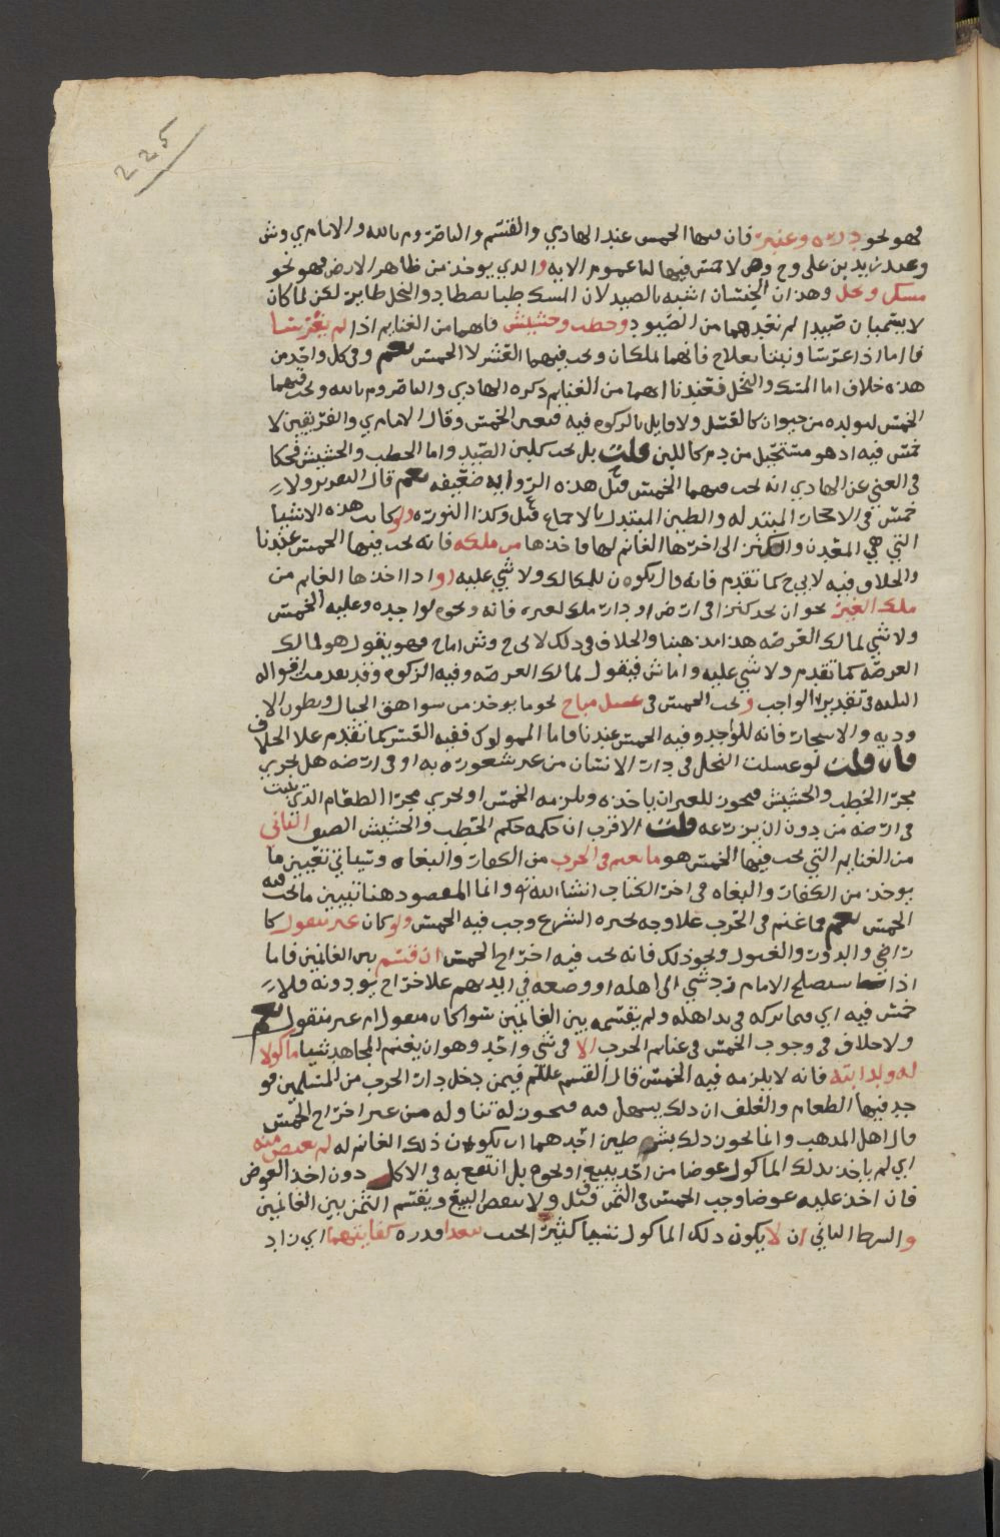 225
فهو نحو درة وعنبر فان فيها الخمس عند الهادي والقسم والناصر وم بالله والامامي وش
وعند زيد بن علي وح وص لا خمس فيها لنا عموم الاية والذي يوخذ من ظاهر الارض فهو نحو
مسك ونحل وهذان الجنسان اشبه بالصيد لان المسك ظبا يصطاد والنحل طاير لكن لما كان
لا يسميان صيدا لم نعدهما من الصيود وحطب وحشيش فانهما من الغنايم اذا لم يغرسا
فاما اذا غرسا ونبتا بعلاج فانهما ملكان ويجب فيهما العشر لا الخمس نعم وفي كل واحد من
هذه خلاف اما المسك والنحل فعندنا انهما من الغنايم ذكره الهادي والناصر وم بالله ويجب فيهما
الخمس لتولده من حيوان كالعسل ولا قايل بالزكوه فيه فتعين الخمس وقال الامامي والفريقين لا
خمس فيه اذ هو مستحيل من دم كاللبن قلت بل يجب كلبن الصيد واما الحطب والحشيش فحكا
في الغني عن الهادي انه يجب فيهما الخمس قيل هذه الرواية ضعيفه نعم قال ولا
خمس في الاحجار المبتدله والطين المبتدل بالاجماع قيل وكذا النوره ولو كانت هذه الاشيا
التي هي المعدن والكنز الى اخرها الغانم لها فاخذها من ملكه فانه يجب فيها الخمس عندنا
والخلاف فيه لابي ح كما تقدم فانه قال يكون للمالك ولا شي عليه او اذا اخذها الغانم من
ملك الغير نحو ان يجد كنزا في ارض او دار ملك لغيره فانه ونحوه لواجده وعليه الخمس
ولا شي لمالك العرصه هذا مذهبنا والخلاف في ذلك لابي ح وش اما ح فهو يقول هو لمالك
العرصه كما تقدم ولا شي عليه واما ش فيقول لمالك العرصه وفيه الزكوه وقد تقدمت اقواله
الثلثه في تقدير الواجب ويجب الخمس في عسل مباح نحو ما يوخذ من شواهق الجبال وبطون الا
وديه والاشجار فانه للواجد وفيه الخمس عندنا فاما المملوك ففيه العشر كما تقدم علا الخلاف
فان قلت لو عسلت النحل في دار الانسان من غير شعوره به او في ارضه هل يجري
مجرا الحطب والحشيش فيجوز للغير ان ياخذه ويلزمه الخمس او يجري مجرا الطعام الذي ينبت
في ارضه من دون ان يزرعه قلت الاقرب ان حكمه حكم الحطب والحشيش الصنف الثاني
من الغنايم التي يجب فيها الخمس هو ما يغنم في الحرب من الكفار والبغاه وسياتي تعيين ما
يوخذ من الكفار والبغاه في اخر الكتاب انشا الله تع وانما المقصود هنا تبيين ما يجب فيه
الخمس نعم فما غنم في الحرب علا وجه يجيزه الشرع وجب فيه الخمس ولو كان غير منقول كا
راضي والدور والغيول ونحو ذلك فانه يجب فيه اخراج الخمس ان قسم بين الغانمين فاما
اذا استصلح الامام رد شي الى اهله او وضعه في ايديهم علا خراج يودونه فلا
خمس فيه اي فيما تركه في يد اهله ولم يقسمه بين الغانمين سوا كان منقول ام غير منقول نعم
ولا خلاف في وجوب الخمس في غنايم الحرب الا في شي واحد وهو ان يغنم المجاهد شيا ماكولا
له ولدابته فانه لا يلزمه فيه الخمس قال القسم عللم فيمن دخل دار الحرب من المسلمين فو
جد فيها الطعام والعلف ان ذلك يسهل فيه فيجوز له تناوله من غير اخراج الخمس
قال اهل المذهب وانما يجوز ذلك بشرطين احدهما ان يكون ذلك الغانم له لم يعتض منه
اي لم ياخذ بدلك الماكول عوضا من احد ببيع او نحوه بل انتفع به في الاكل دون اخذ العوض
فان اخذ عليه عوضا وجب الخمس في الثمن قيل ولا ينقض البيع ويقسم الثمن بين الغانمين
والشرط الثاني ان لا يكون ذلك الماكول شيا كثير بحيث تعدا قدره كفايتهما اي زاد